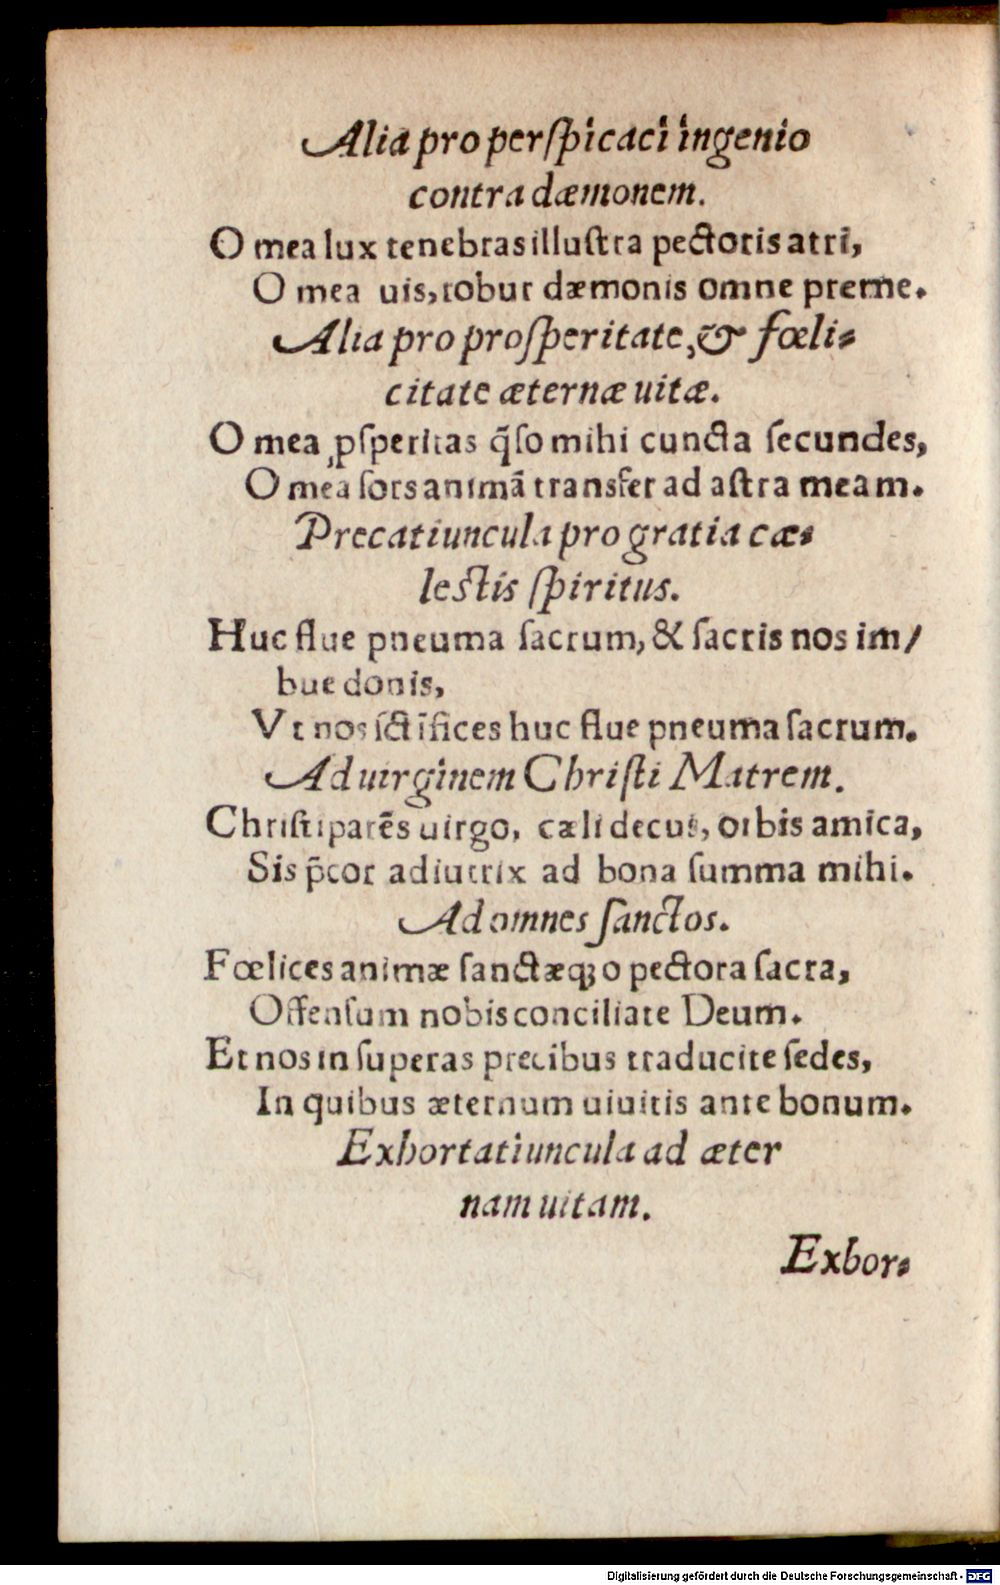 Alia pro perſpicaci ingenio
contra dæmonem.
O mea lux tenebras illuſtra pectoris atri,
O mea uis, robur dæmonis omne preme.
Alia pro proſperitate, & fœli⸗
citate æternæ uitæ.
O mea ꝓſperitas q̃ſo mihi cuncta ſecundes,
O mea ſors animã transfer ad aſtra meam.
Precatiuncula pro gratia cæ⸗
leſtis ſpiritus.
Huc flue pneuma ſacrum, & ſacris nos im/
bue donis,
Vt nos ſctĩfices huc flue pneuma ſacrum.
Ad uirginem Chriſti Matrem.
Chriſtiparẽs uirgo, cæli decus, orbis amica,
Sis p̃cor adiutrix ad bona ſumma mihi.
Ad omnes ſanctos.
Fœlices animæ ſanctæq; o pectora ſacra,
Offenſum nobis conciliate Deum.
Et nos in ſuperas precibus traducite ſedes,
In quibus æternum uiuitis ante bonum.
Exhortatiuncula ad æter
nam uitam.
Exhor⸗
Digitalisierung gefördert durch die Deutsche Forschungsgemeinschaft - DFG